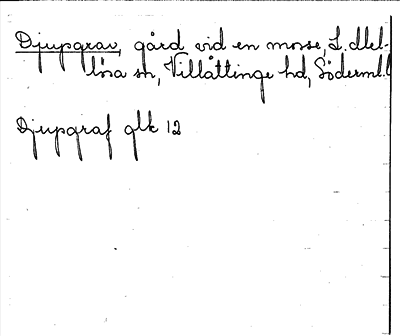 Djupgrav, gård vid en mosse, L. Mel-
lösa sn, Villåttinge hd, Söderml.
Djupgraf glk 12